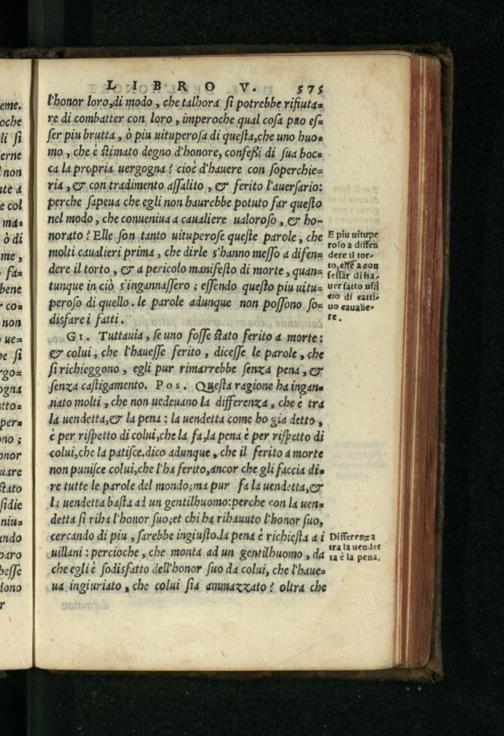 LIBRO V. 575
l'honor loro, di modo, che talhora si potrebbe rifiuta=
re di combatter con loro, imperoche qual cosa puo es=
ser piu brutta, ò piu uituperosa di questa, che uno huo=
mo, che è stimato degno d'honore, confeßi di sua boc=
ca la propria uergogna? cioè d'hauere con soperchie=
ria, & con tradimento assalito, & ferito l'auersario:
perche sapeua che egli non haurebbe potuto far questo
nel modo, che conueniua a caualiere ualoroso, & ho=
norato? Elle son tanto uituperose queste parole, che
molti caualieri prima, che dirle s'hanno messo a difen=
dere il torto, & a pericolo manifesto di morte, quan=
tunque in ciò s'ingannassero; essendo questo piu uitu=
peroso di quello. le parole adunque non possono so=
disfare i fatti.
GI. Tuttauia, se uno fosse stato ferito a morte:
& colui, che l'hauesse ferito, dicesse le parole, che
si richieggono, egli pur rimarrebbe senza pena, &
senza castigamento. POS. Questa ragione ha ingan=
nato molti, che non uedeuano la differenza, che è tra
la uendetta, & la pena: la uendetta come ho gia detto,
è per rispetto di colui, che la fa, la pena è per rispetto di
colui, che la patisce. dico adunque, che il ferito a morte
non punisce colui, che l'ha ferito, ancor che gli faccia di=
re tutte le parole del mondo; ma pur fa la uendetta, &
la uendetta basta ad un gentilhuomo: perche con la uen=
detta si riha l'honor suo; et chi ha rihauuto l'honor suo,
cercando di piu, sarebbe ingiusto. la pena è richiesta a i
uillani: percioche, che monta ad un gentilhuomo, da
che egli è sodisfatto dell'honor suo da colui, che l'haue=
ua ingiuriato, che colui sia ammazzato? oltra che
E piu uitupe
roso a diffen
dere il tor=
to, che a con
fessar di ha=
uer fatto uffi
cio di catti=
uo caualie=
re.
Differenza
tra la uendet
ta e la pena.
eme.
oche
li si
erne
non
nte a
e col
ma=
ò di
me,
fa=
bene
co=
non
ue=
he si
rgo=
ogna
tto=
per=
ono;
onor
uare
stato
sidie
niu=
ando
paro
besse
dono
r